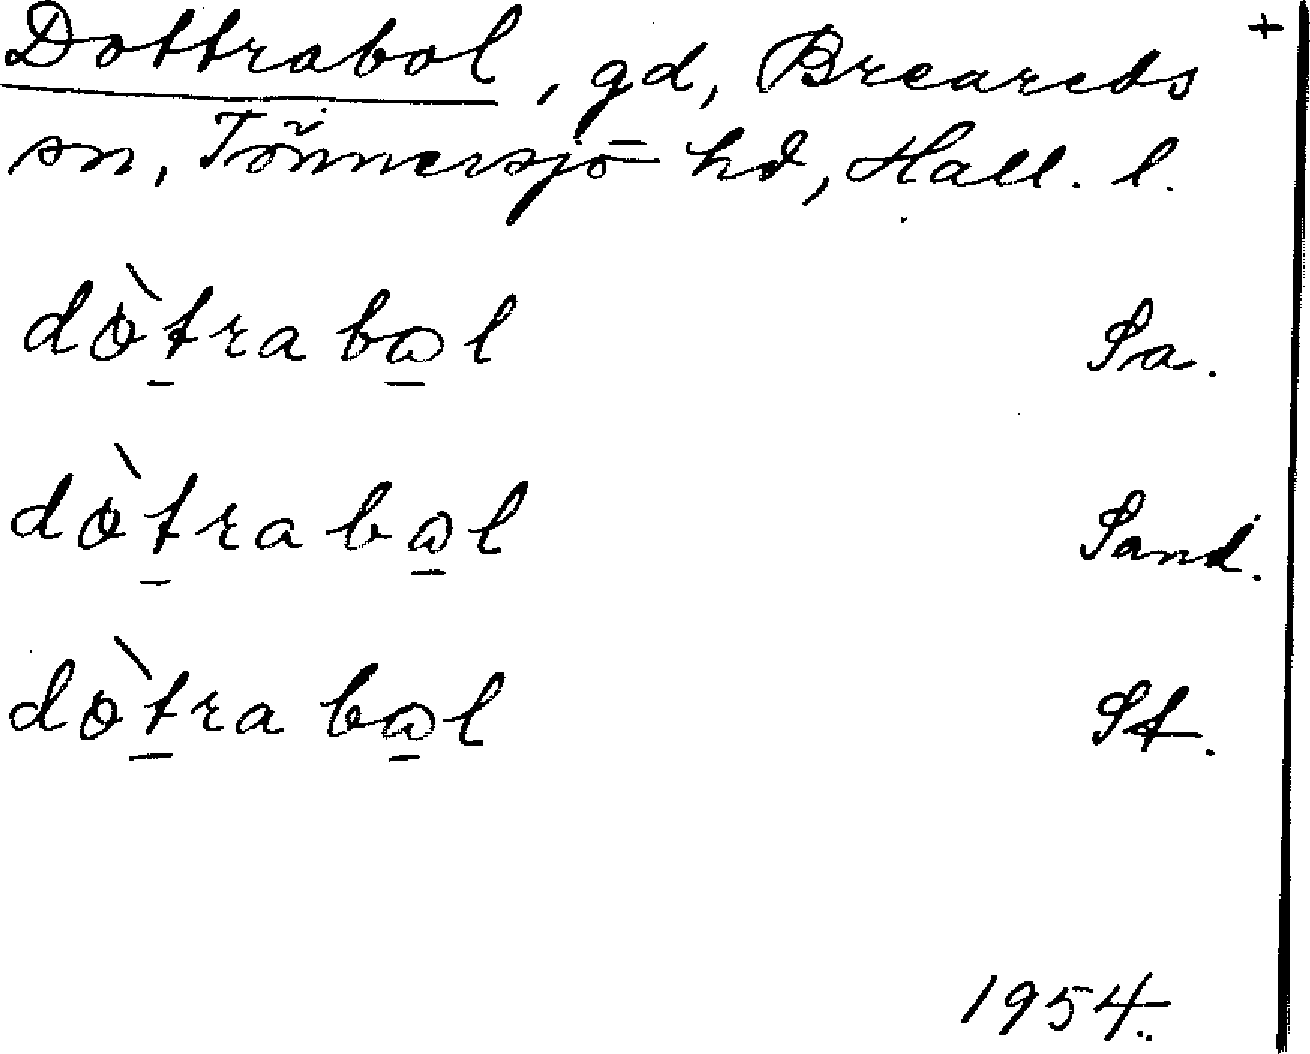 Dottrabol, gd, Breareds +
sn, Tönnersjö hd, Hall. l.
dòt̲rabω̲l Sa.
dòt̲rabω̲l Sand.
dòt̲rabω̲l St.
1954.